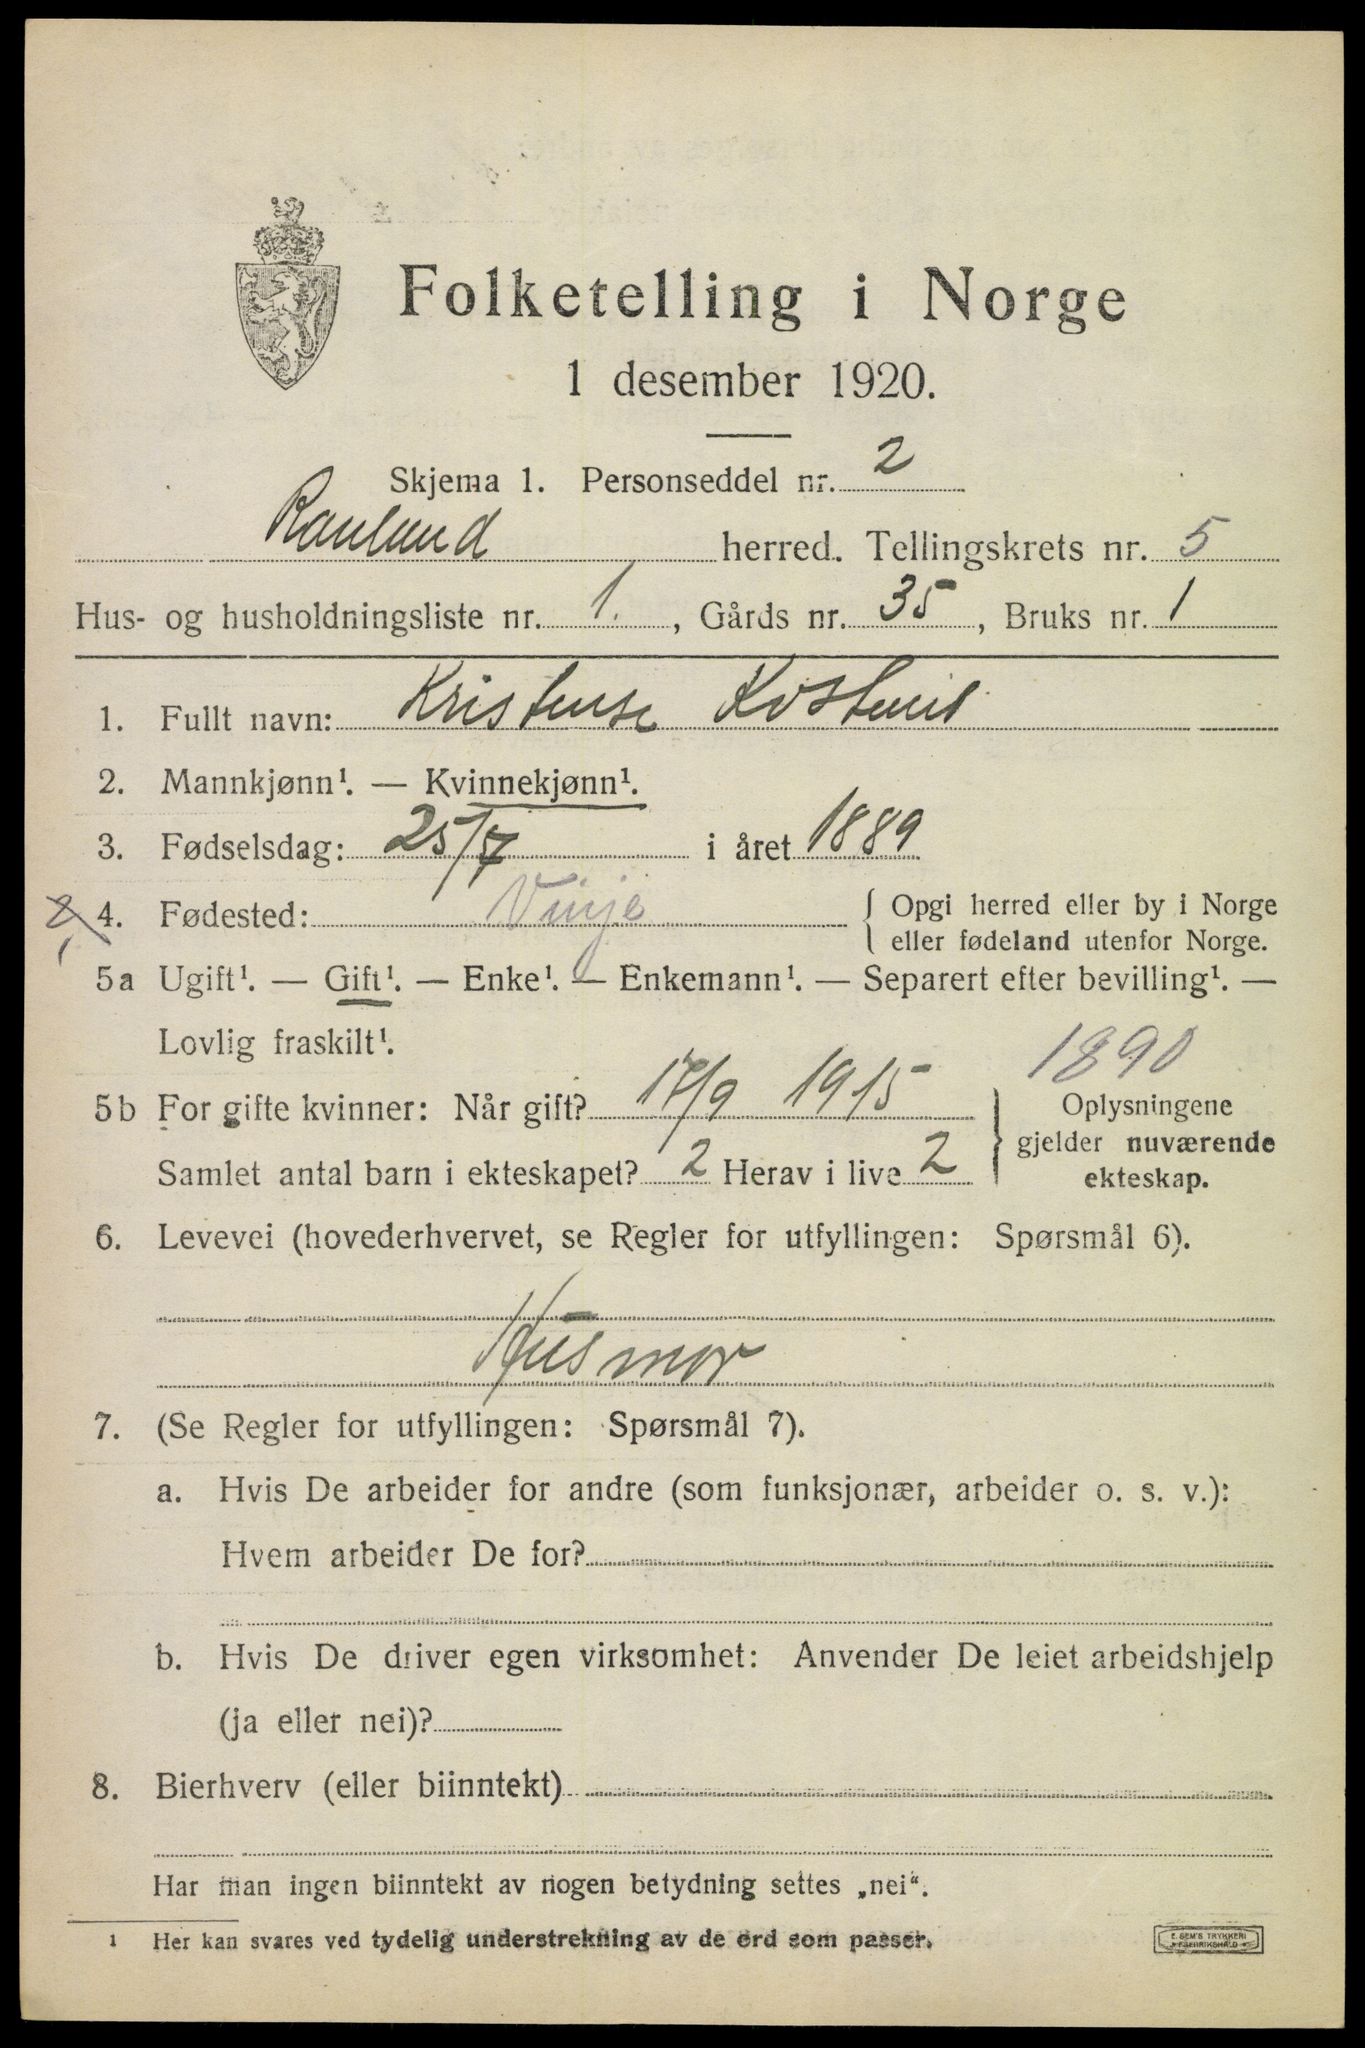 Folketelling i Norge
1 desember 1920.
Skjema 1. Personseddel nr. 2
Rauland herred. Tellingskrets nr. 5
Hus- og husholdningsliste nr. 1. , Gårds nr. 35 , Bruks nr. 1
1. Fullt navn: Kristense
2. Mannkjønn¹. — Kvinnekjønn¹.
3. Fødselsdag: 25/7 i året 1889
4. Fødested: Vinje { Opgi herred eller by i Norge
eller fødeland utenfor Norge.
5a Ugift¹. — Gift¹. — Enke¹. — Enkemann¹. — Separert efter bevilling¹. —
Lovlig fraskilt¹.
1890
5b For gifte kvinner: Når gift? 17/9 1915 } Oplysningene
gjelder nuværende
Samlet antal barn i ekteskapet? 2 Herav i live 2 ekteskap.
6. Levevei (hovederhvervet, se Regler for utfyllingen: Spørsmål 6).
Husmor
7. (Se Regler for utfyllingen: Spørsmål 7).
a. Hvis De arbeider for andre (som funksjonær, arbeider o. s. v.):
Hvem arbeider De for?
b. Hvis De driver egen virksomhet: Anvender De leiet arbeidshjelp
(ja eller nei)?
8. Bierhverv (eller biinntekt)
Har man ingen biinntekt av nogen betydning settes „nei“.
¹ Her kan svares ved tydelig understrekning av de ord som passer.
E. SEM'S TRYKKERI
FREDRIKSHALD